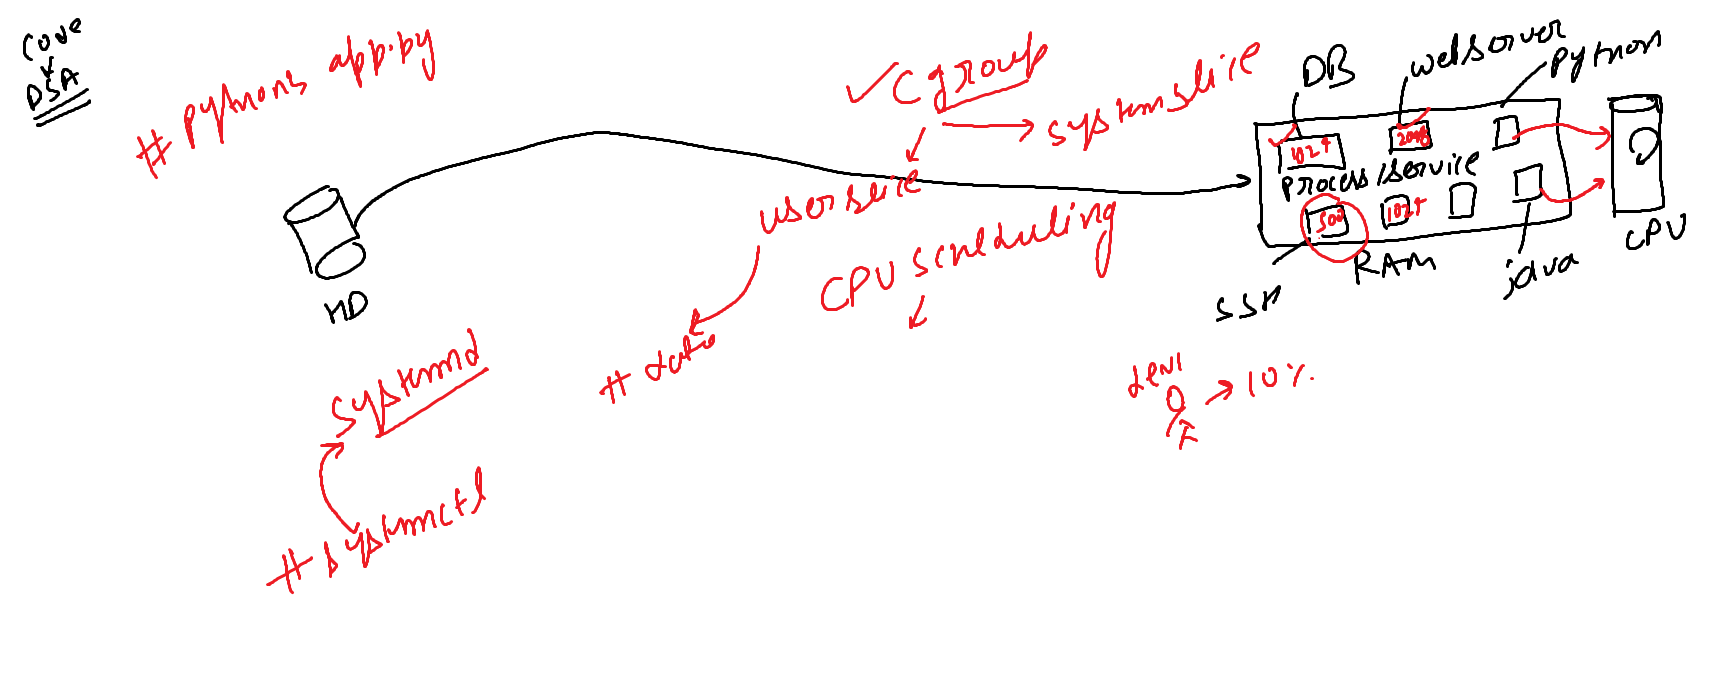 core
DSA
# python3 app.py
cgroup
systemslice
userslice
CPU scheduling
# date
systemd
# systemctl
HD
DB
webserver
python
1024
2048
process/service
500
1024
RAM
SSH
java
CPU
10%